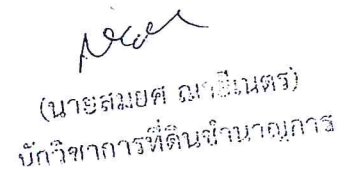 (นายสมยศ ณารีเนตร)
นักวิชาการที่ดินชำนาญการ